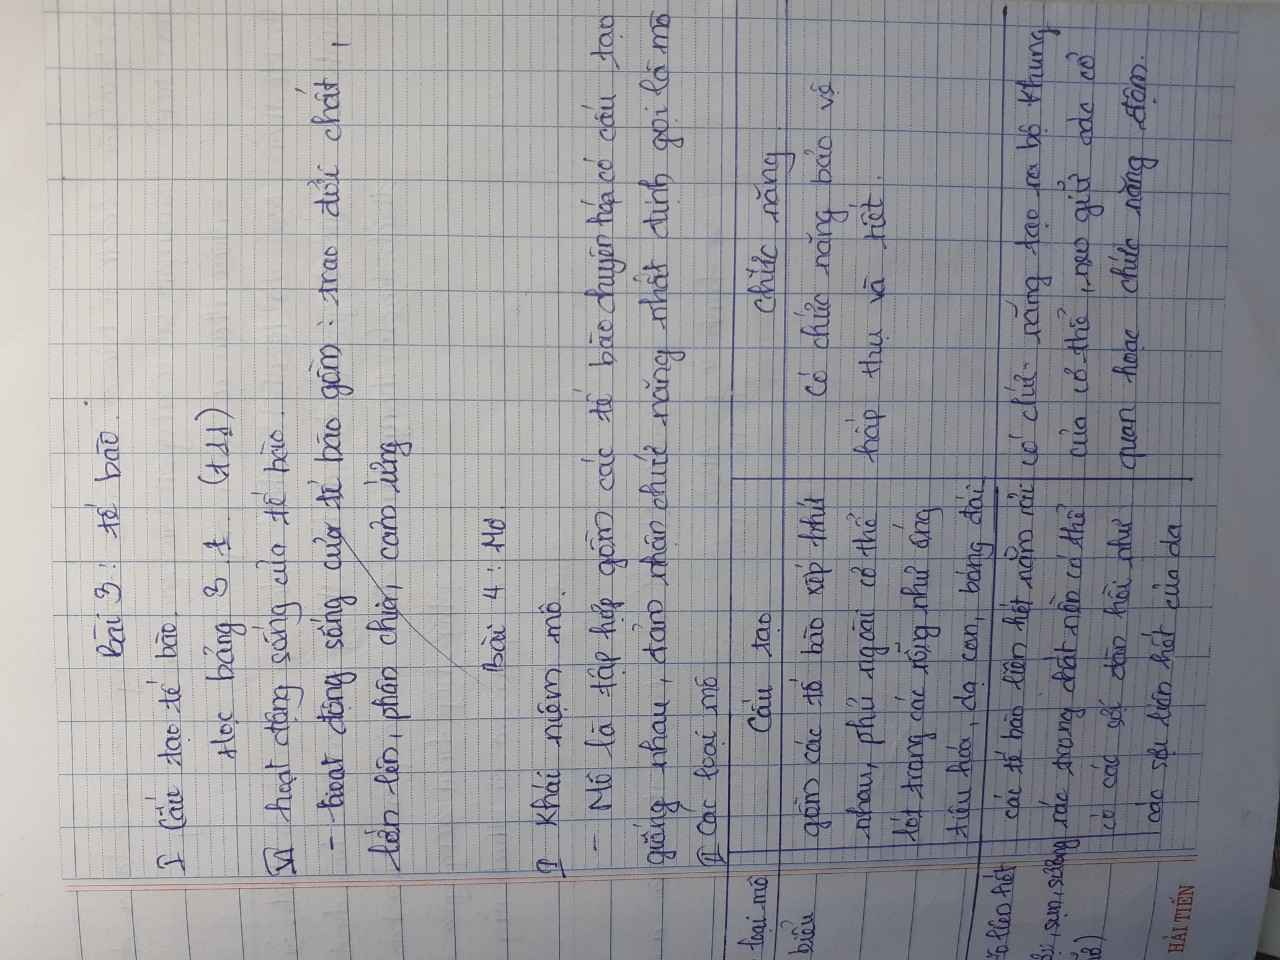 Bài 3: tế bào.
I Cấu tạo tế bào.
Học bảng 3.1 (t11)
VI hoạt động sống của tế bào.
- hoạt động sống của tế bào gồm: trao đổi chất,
lớn lên, phân chia, cảm ứng
Bài 4: Mô
I Khái niệm mô.
- Mô là tập hợp gồm các tế bào chuyên hóa có cấu tạo
giống nhau, đảm nhận chức năng nhất định gọi là mô
II Các loại mô
loại mô Cấu tạo chức năng
biểu gồm các tế bào xếp khít có chức năng bảo vệ
nhau, phủ ngoài cơ thể hấp thụ và tiết.
lót trong các rỗng như ống
tiêu hóa, dạ con, bóng đái
liên kết các tế bào liên kết nằm rải có chức năng tạo ra bộ khung
sụn, xương rác trong chất nền có thể của cơ thể, neo giữ các cơ
có các sợi đàn hồi như quan hoặc chức năng đệm.
các sợi liên kết của da
HẢI TIẾN